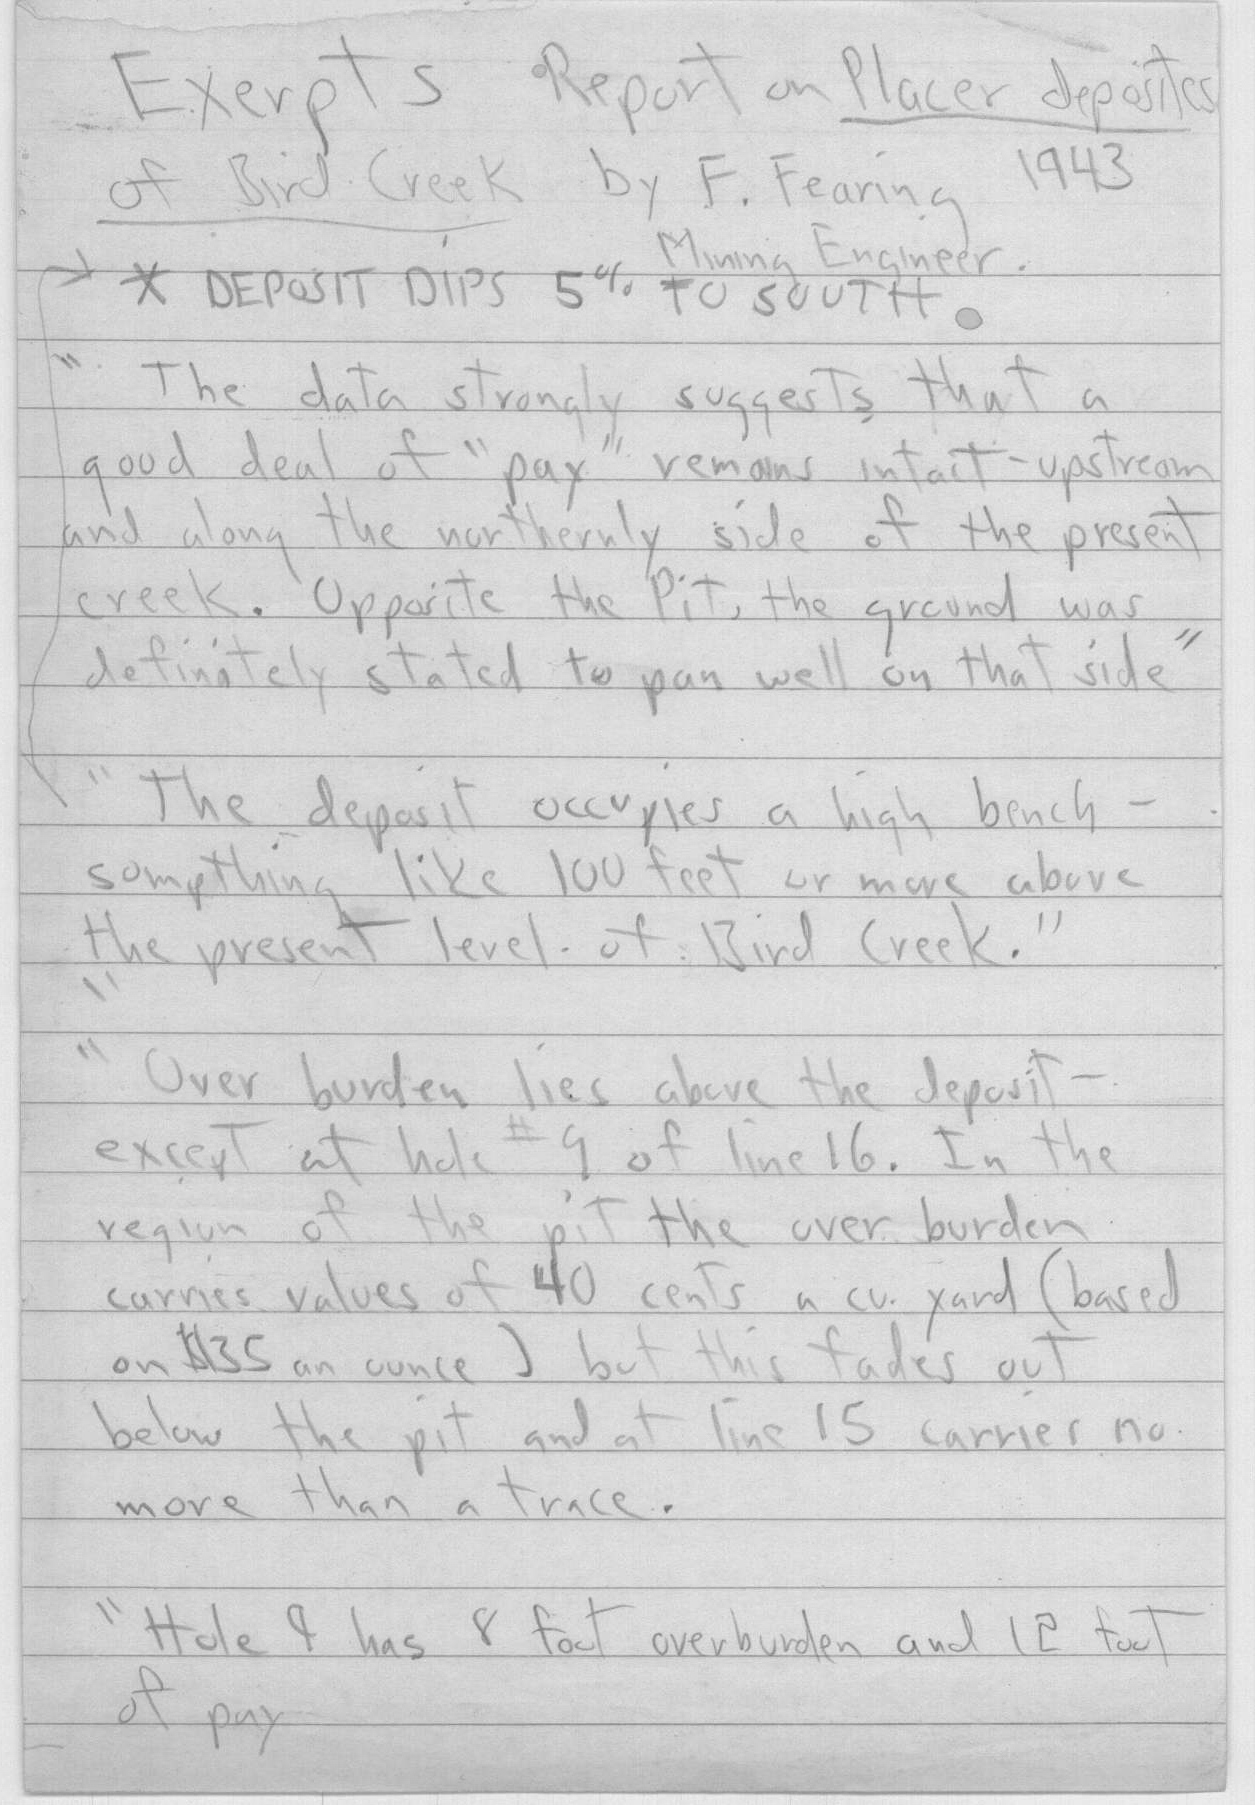 Exerpts Report on Placer deposites
of Bird Creek by F. Fearing 1943
Mining Engineer.
* DEPOSIT DIPS 5% TO SOUTH.
" The data strongly suggests that a
good deal of "pay" remains intact - upstream
and along the northernly side of the present
creek. Opposite the Pit, the ground was
definitely stated to pan well on that side"
"The deposit occupies a high bench -
sompthing like 100 feet or more above
the present level of Bird Creek."
"
" Over burden lies above the deposit -
except at hole #9 of line 16. In the
region of the pit the over burden
carries values of 40 cents a cu. yard (based
on $35 an ounce) but this fades out
below the pit and at line 15 carries no
more than a trace.
"Hole 9 has 8 foot overburden and 12 foot
of pay